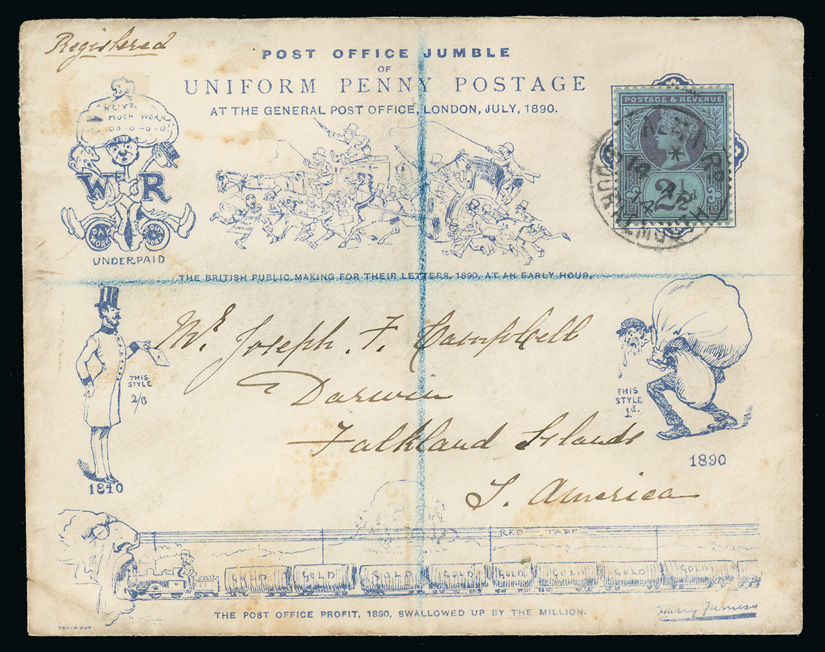 Registered
POST OFFICE JUMBLE
OF
UNIFORM PENNY POSTAGE
AT THE GENERAL POST OFFICE, LONDON, JULY, 1890.
MUCH WORK
W R
UNDERPAID
POSTAGE & REVENUE
2½
THE BRITISH PUBLIC MAKING FOR THEIR LETTERS, 1890, AT AN EARLY HOUR.
Mr. Joseph. F. Campbell
Darwin
Falkland Islands
S. America
THIS
STYLE
2/6
1840
THIS
STYLE
1d.
1890
RED TAPE
THE POST OFFICE PROFIT, 1890, SWALLOWED UP BY THE MILLION.
Harry Furniss
COPYRIGHT